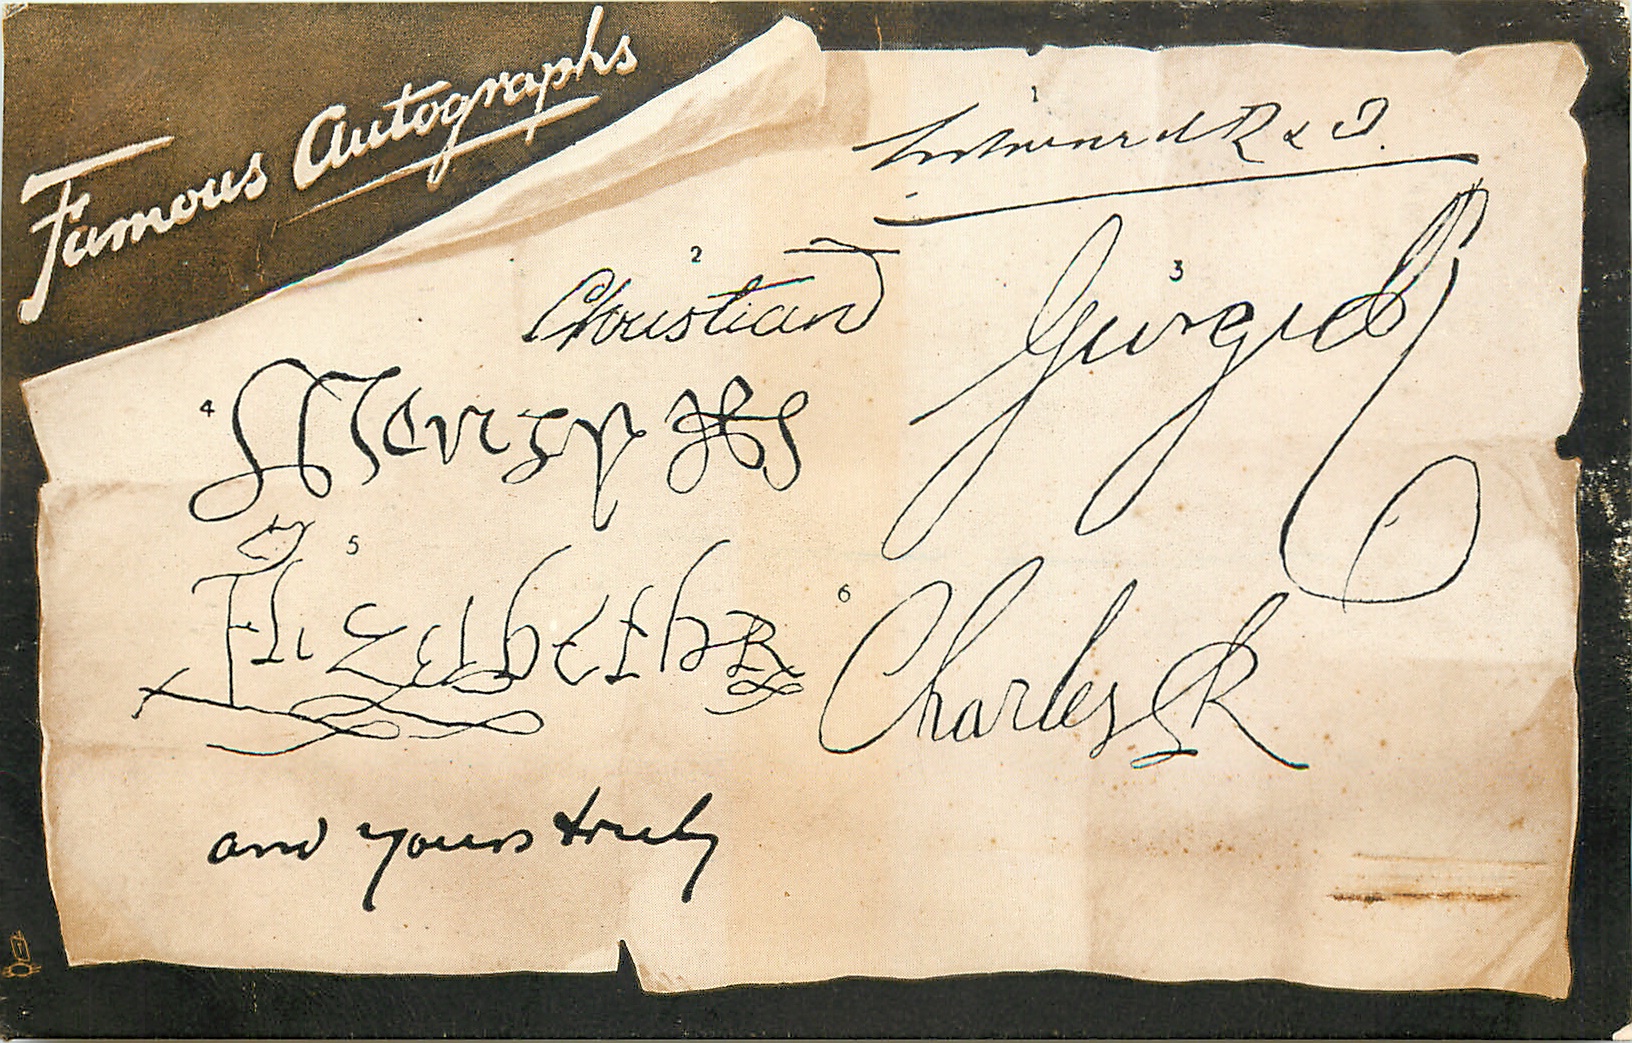 Famous Autographs
1
Edward R & I.
2
Christian
3
Georges
4
Henry R
5
Elizabeth R
6
Charles R
and yours truly